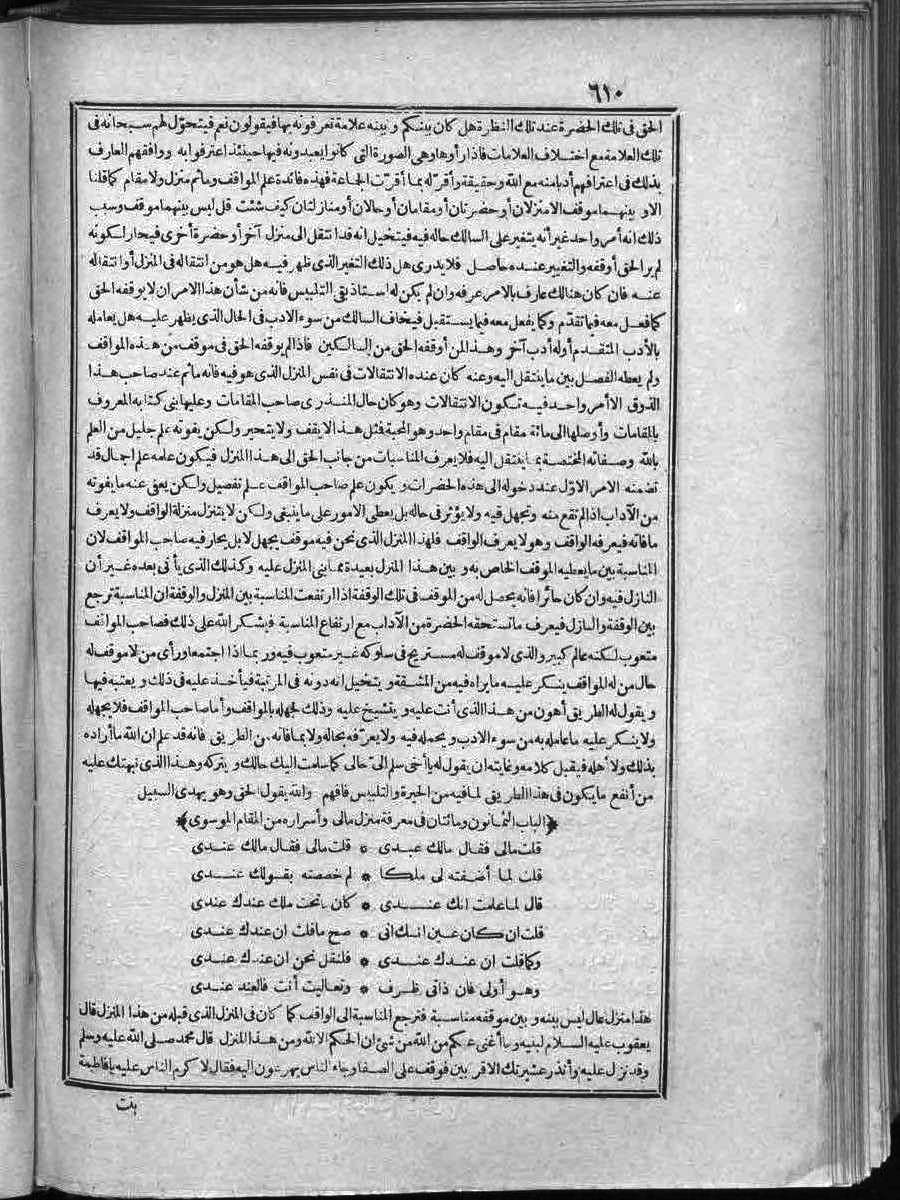 ٦١٠
الحق فى تلك الحضرة عند تلك النظرة هل كان بينكم وبينه علامة تعرفونه بها فيقولون نعم فيتحوّل لهم سبحانه فى
تلك العلامة مع اختلاف العلامات فاذا رأوها وهى الصورة التى كانوا يعبدونه فيها حينئذ اعترفوا به ووافقهم العارف
بذلك فى اعترافهم أدبا منه مع الله وحقيقة وأقرّ له بما أقرّت الجماعة فهذه فائدة علم المواقف وماثم منزل ولا مقام كما قلنا
الاو بينهما موقف الا منزلان أو حضرتان أو مقامان أو حالان أو منازلتان كيف شئت قل ليس بينهما موقف وسبب
ذلك انه أمر واحد غير أنه يتغير على السالك حاله فيه فيتخيل انه قد انتقل الى منزل آخر أو حضرة أخرى فيحار لكونه
لم ير الحق أوقفه والتغيير عنده حاصل فلا يدرى هل ذلك التغير الذى ظهر فيه هل هو من انتقاله فى المنزل أو انتقاله
عنه فان كان هنالك عارف بالامر عرفه وان لم يكن له استاذ بقى التلبيس فانه من شأن هذا الامر ان لا يوقفه الحق
كما فعل معه فيما تقدّم وكما يفعل معه فيما يستقبل فيخاف السالك من سوء الادب فى الحال الذى يظهر عليه هل يعامله
بالأدب المتقدم أو له أدب آخر وهذا لمن أوقفه الحق من السالكين فاذا لم يوقفه الحق فى موقف من هذه المواقف
ولم يعطه الفصل بين ما ينتقل اليه وعنه كان عنده الانتقالات فى نفس المنزل الذى هو فيه فانه ماثم عند صاحب هذا
الذوق الا أمر واحد فيه تكون الانتقالات وهو كان حال المنذرى صاحب المقامات وعليها بنى كتابه المعروف
بالمقامات وأوصلها الى مائة مقام فى مقام واحد وهو المحبة فمثل هذا لا يقف ولا يتحير ولكن يفوته علم جليل من العلم
بالله وصفاته المختصة بما ينتقل اليه فلا يعرف المناسبات من جانب الحق الى هذا المنزل فيكون علمه علم اجمال قد
تضمنه الامر الاوّل عند دخوله الى هذه الحضرات ويكون علم صاحب المواقف علم تفصيل ولكن يعفى عنه ما يفوته
من الآداب اذا لم تقع منه وتجهل فيه ولا يؤثر فى حاله بل يعطى الامور على ما ينبغى ولكن لا يتنزل منزلة الواقف ولا يعرف
ما فاته فيعرفه الواقف وهو لا يعرف الواقف فلهذا المنزل الذى نحن فيه موقف يجهل لا بل يحار فيه صاحب المواقف لان
المناسبة بين ما يعطيه الموقف الخاص به وبين هذا المنزل بعيدة مما بنى المنزل عليه وكذلك الذى يأتى بعده غير أن
النازل فيه وان كان حائرا فانه يحصل له من الموقف فى تلك الوقفة اذا ارتفعت المناسبة بين المنزل والوقفة ان المناسبة ترجع
بين الوقفة والنازل فيعرف ما تستحقه الحضرة من الآداب مع ارتفاع المناسبة فيشكر الله على ذلك فصاحب المواقف
متعوب لكنه عالم كبير والذى لا موقف له مستريح فى سلوكه غير متعوب فيه وربما اذا اجتمعا ورأى من لا موقف له
حال من له المواقف ينكر عليه ما يراه فيه من المشقة ويتخيل انه دونه فى المرتبة فيأخذ عليه فى ذلك ويعتبه فيها
ويقول له الطريق أهون من هذا الذى أنت عليه ويتشيخ عليه وذلك لجهله بالمواقف وأما صاحب المواقف فلا يجهله
ولا ينكر عليه ما عامله به من سوء الادب ويحمله فيه ولا يعرّفه بحاله ولا بما فاته من الطريق فانه قد علم ان الله ما أراده
بذلك ولا أهله فيقبل كلامه وغايته ان يقول له يا أخى سلم الىّ حالى كما سلمت اليك حالك ويتركه وهذا الذى نبهتك عليه
من أنفع ما يكون فى هذا الطريق لما فيه من الحيرة والتلبيس فافهم والله يقول الحق وهو يهدى السبيل
﴿الباب الثمانون ومائتان فى معرفة منزل مالى وأسراره من المقام الموسوى﴾
قلت مالى فقال مالك عبدى * قلت مالى فقال مالك عندى
قلت لما أضفته لى ملكا * لم خصصته بقولك عندى
قال لما علمت انك عندى * كان ما تحت ملك عندك عندى
قلت ان كان عين انك انى * صح ما قلت ان عندك عندى
وكما قلت ان عندك عندى * فلنقل نحن ان عندك عندى
وهو أولى فان ذاتى ظرف * وتعاليت أنت فالعند عندى
هذا منزل عال ليس بينه وبين موقفه مناسبة فترجع المناسبة الى الواقف كما كان فى المنزل الذى قبله من هذا المنزل قال
يعقوب عليه السلام لبنيه وما أغنى عنكم من الله من شئ ان الحكم الا لله ومن هذا المنزل قال محمد صلى الله عليه وسلم
وقد نزل عليه وأنذر عشيرتك الاقربين فوقف على الصفا وجاء الناس يهرعون اليه فقال لا كرم الناس عليه يا فاطمة
بنت